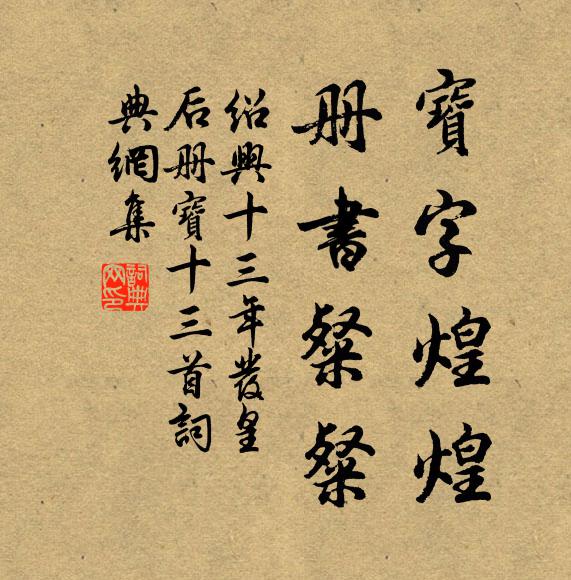 寶字煌煌
册書粲粲
紹興十三年發皇
后册寶十三首詞
典網集
詞典網印